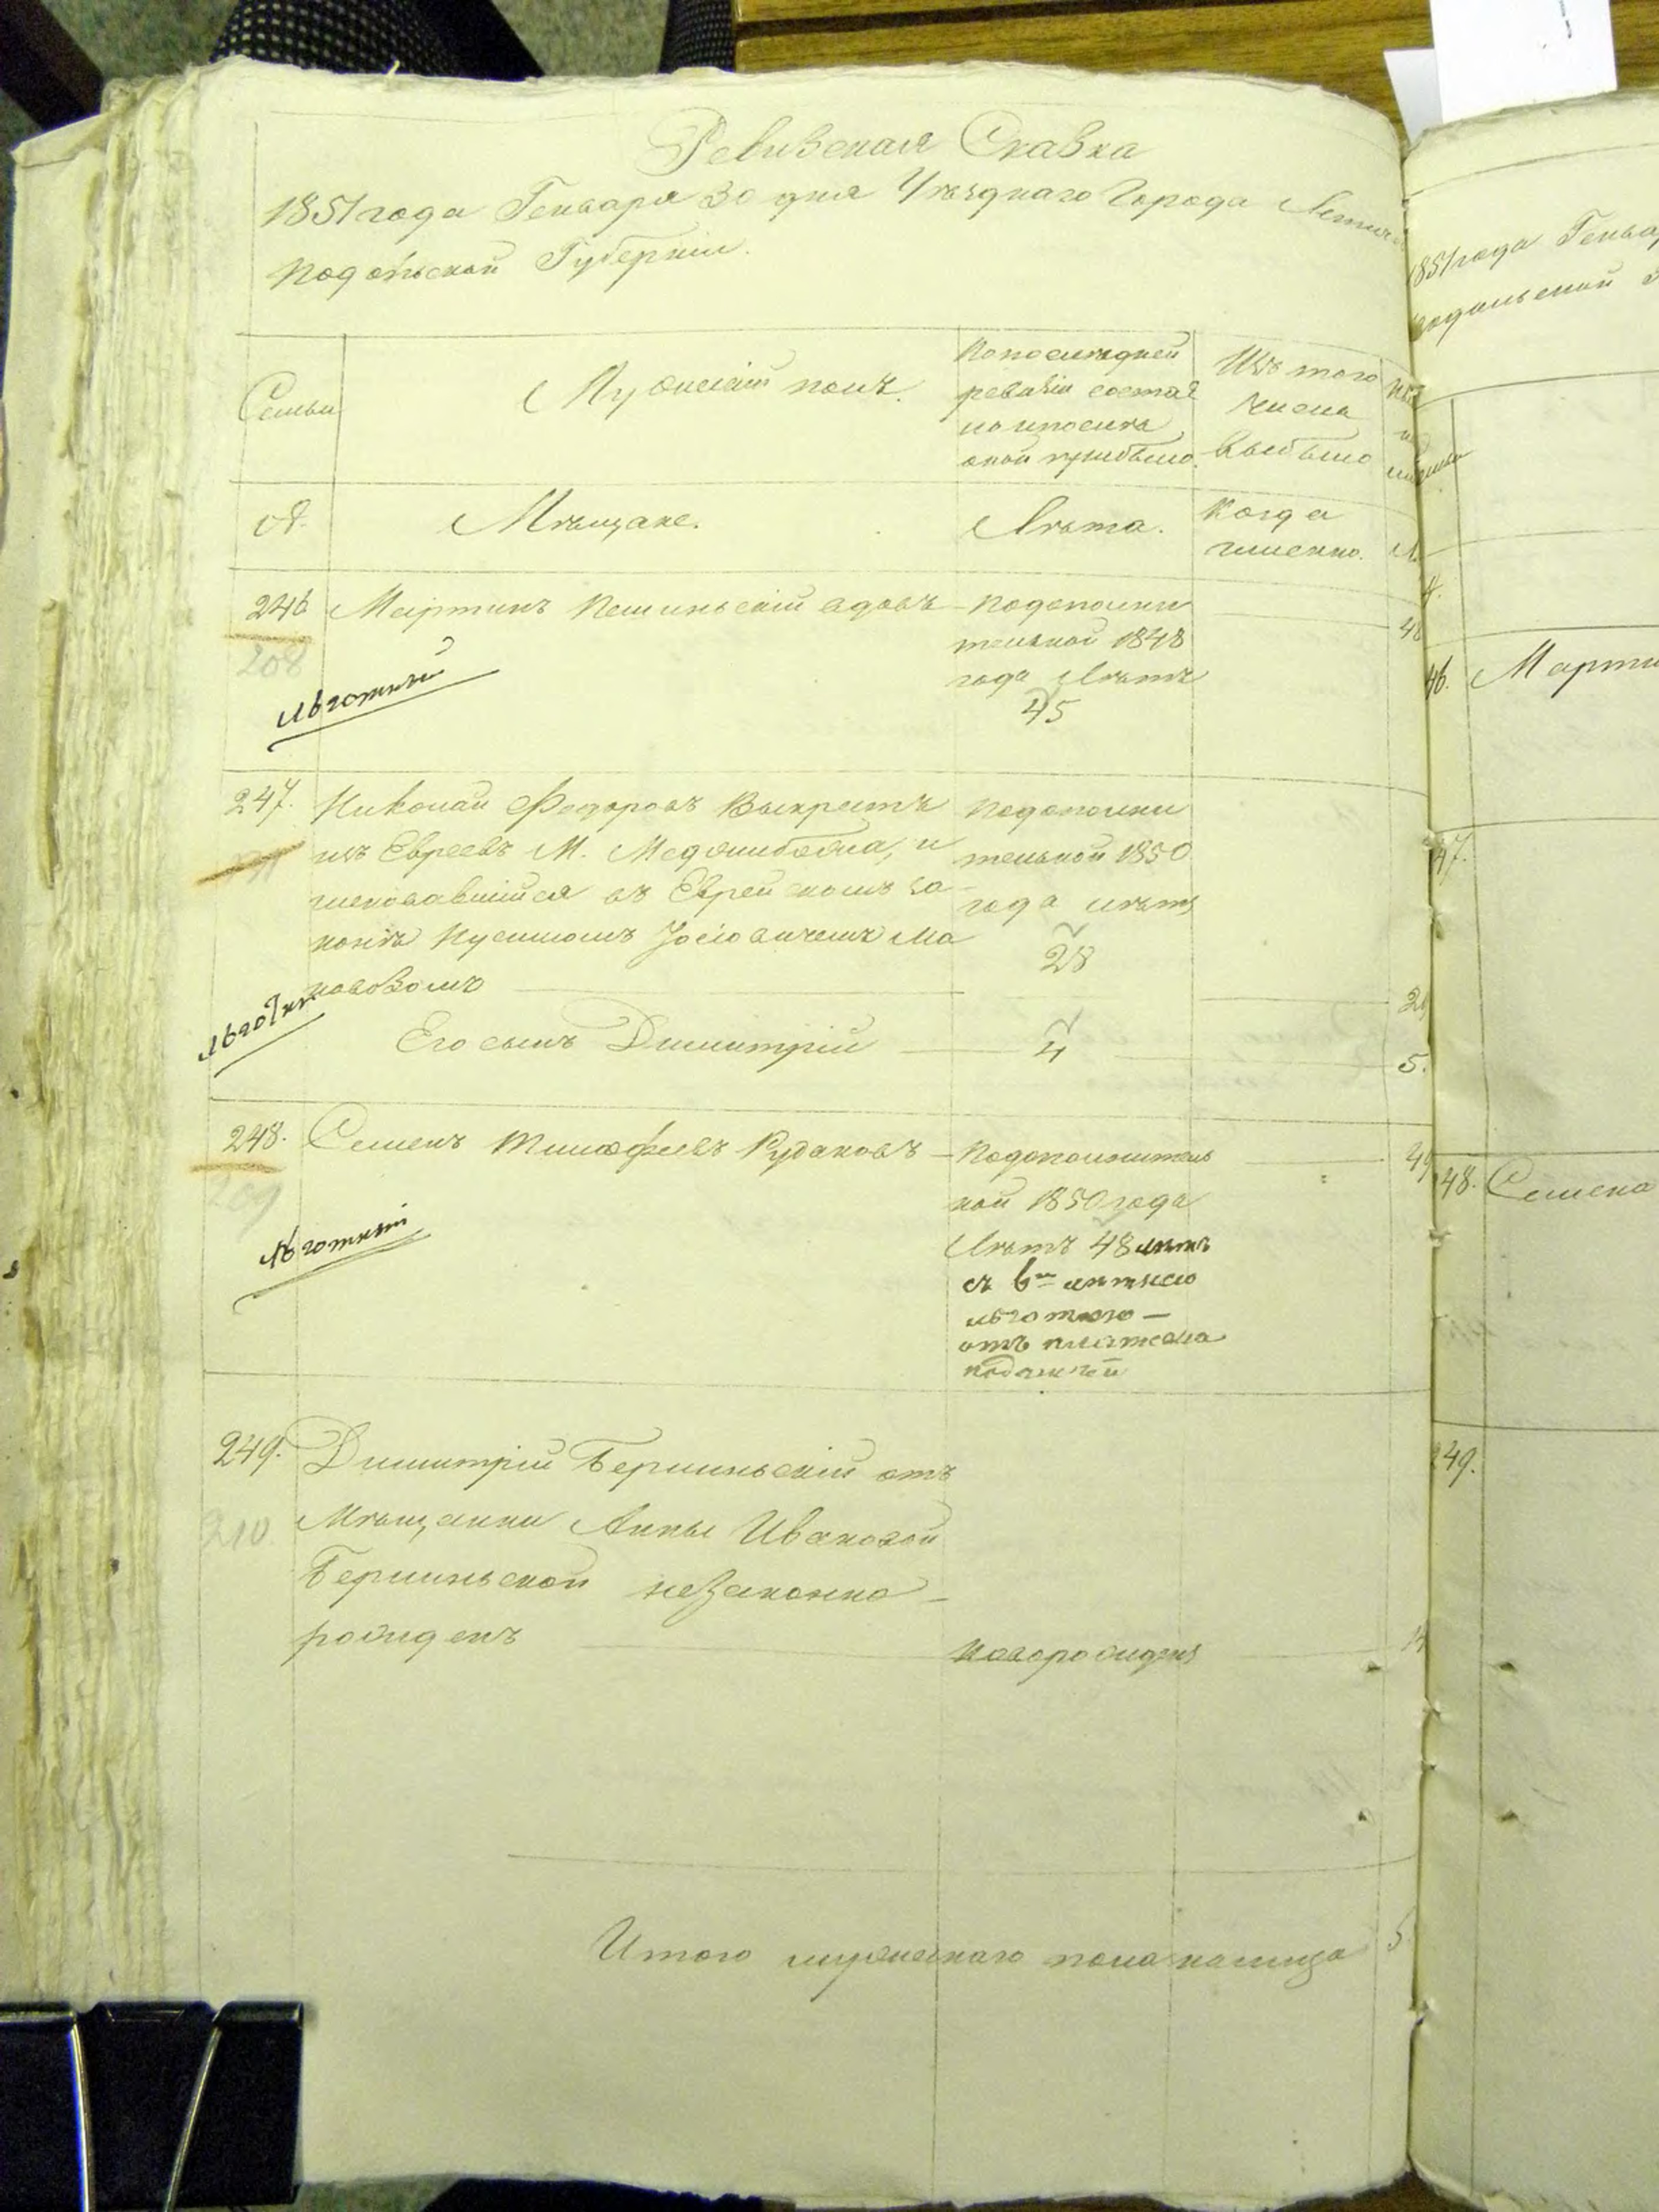 Ревизская Сказка
1851 года Генваря 30 дня Уѣзднаго Города Летич
Подольской Губерніи.
Семьи
Мужескій полъ.
По послѣдней
ревизіи состоя
ло и послѣ
оной прибыло.
Изъ того
числа
выбыло
№.
Мѣщане.
Лѣта.
Когда
имянно.
246
Мартинъ вдовъ
По дополни
тельной 1848
года Лѣтъ
45
208
Льготный
247.
Николай Федоровъ Выкрестъ
изъ Евреевъ М. Меджибожа, и
меновавшійся въ Еврейскомъ за
конѣ Іосіовичемъ Ма
По дополни
тельной 1850
года лѣтъ
28
Льготн
Его сынъ Димитрій
4
5.
248.
Семенъ Тимофѣевъ Рудаковъ
По дополнитель
ной 1850 года
Лѣтъ 48 лѣтъ
съ 6ти лѣтнею
льготою
отъ платежа
податей
49
209
Льготный
249.
Димитрій Бершинскій отъ
Мѣщанки Анны Ивановой
Бершинской незаконно
рожденъ
Новорожденъ
210.
Итого мужескаго пола налицо
5
1851 года Генва
Подольской
46. Марти
47.
48. Семена
249.